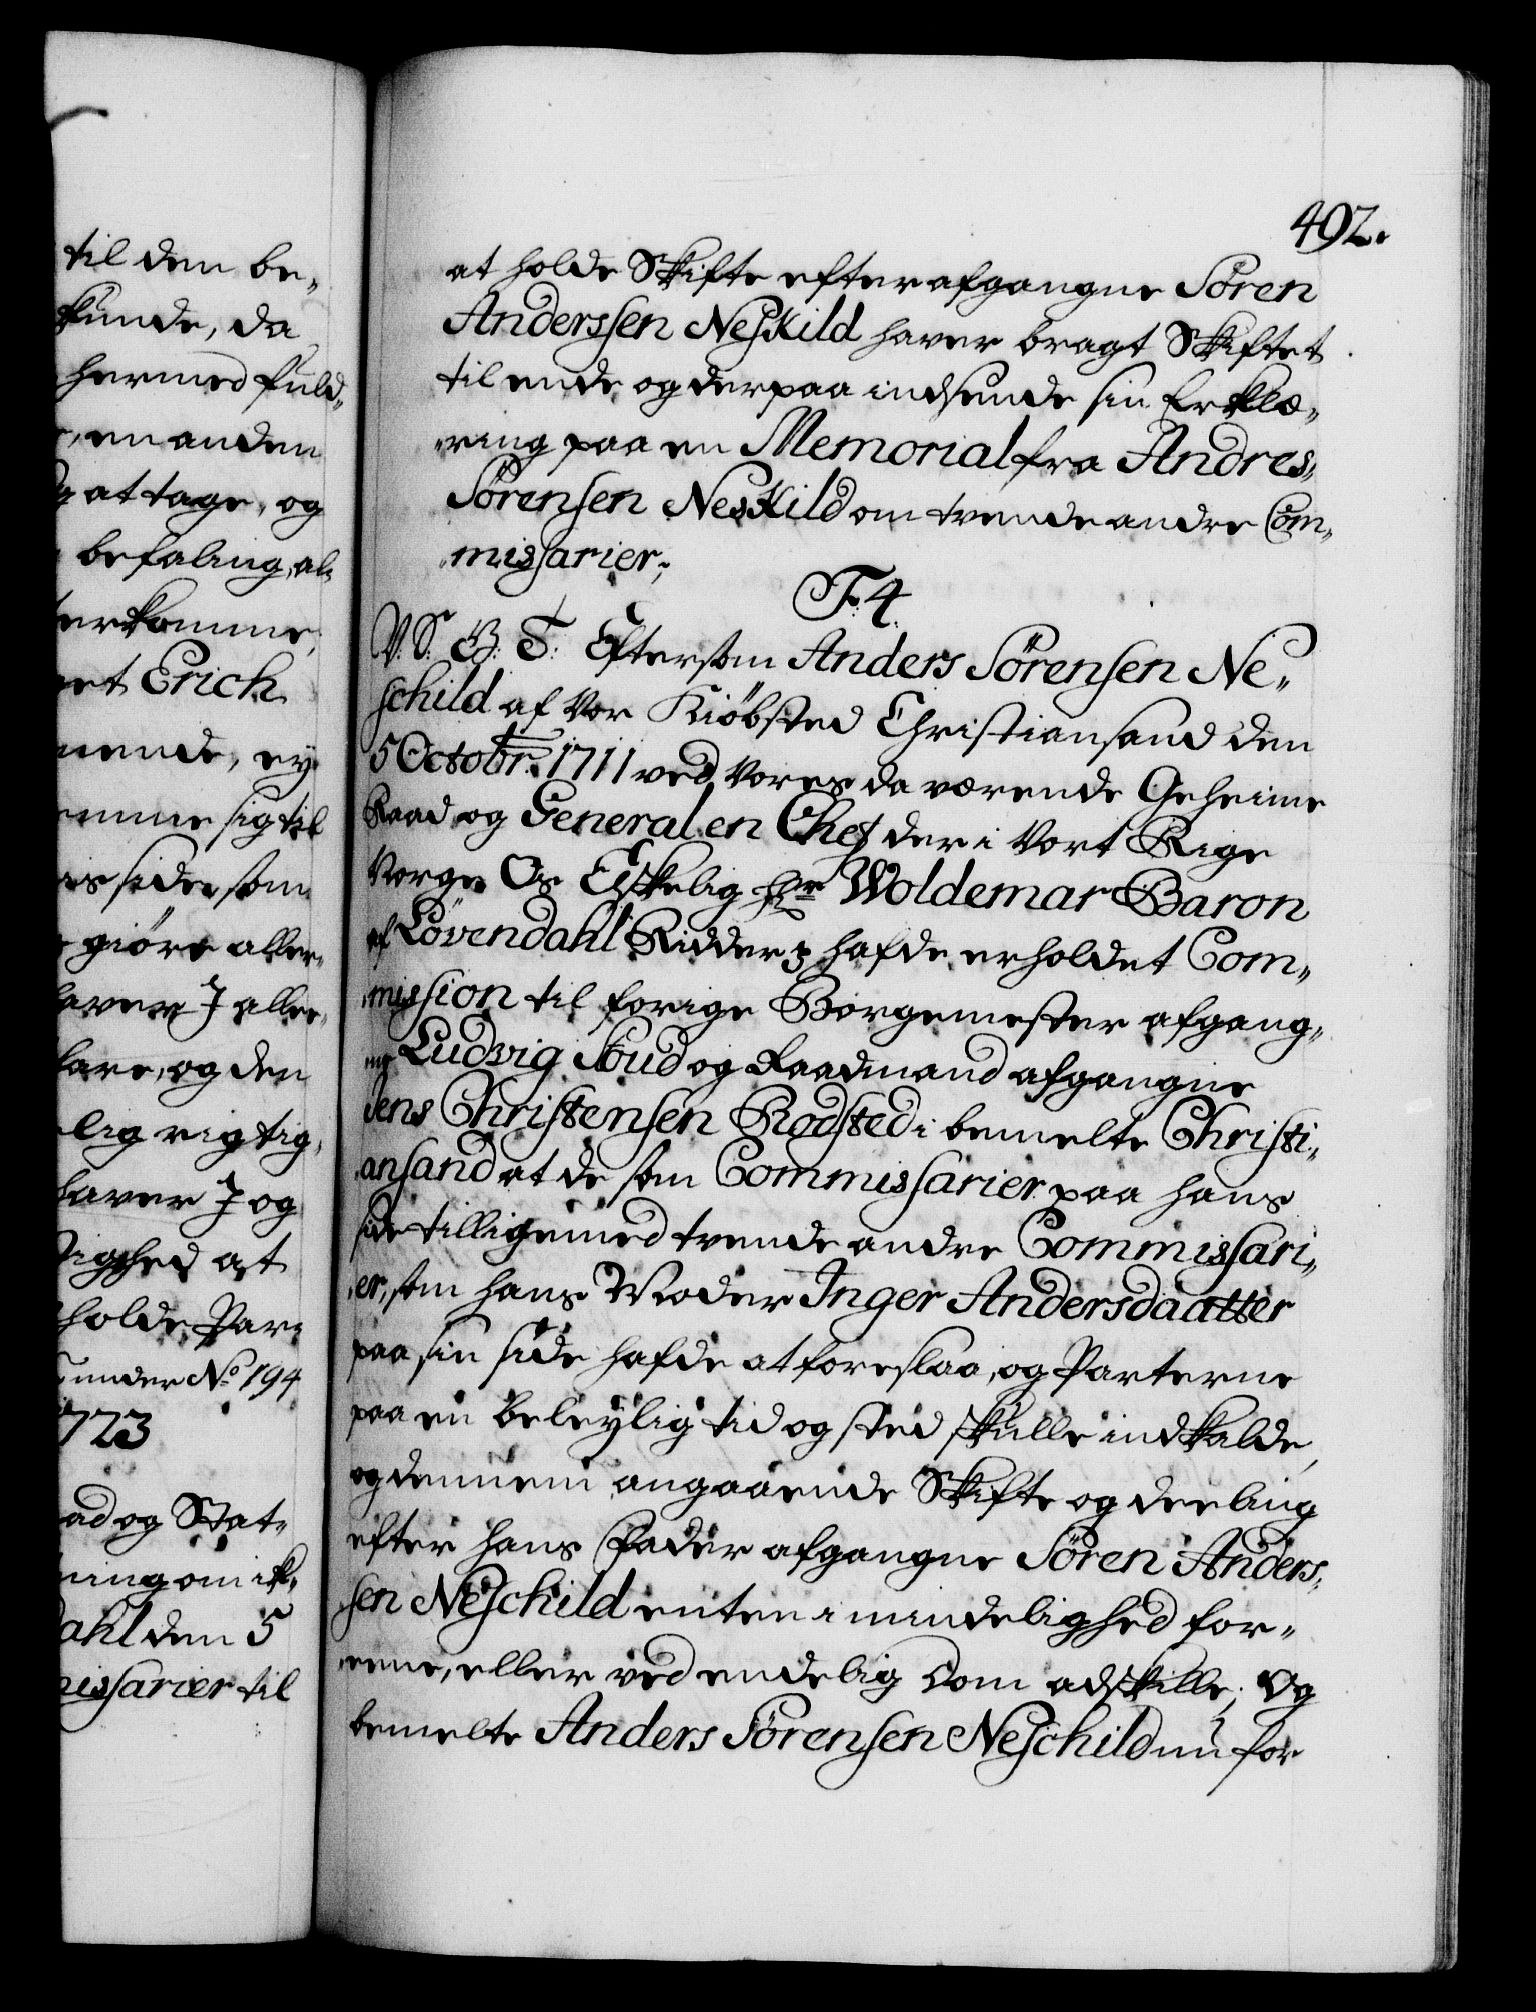 til den be„
kunde, da
hermed fuld„
en anden
at tage, og
befaling, al„
terkomme,
et Erich
nende, ey
emme sig til
is side, som
giöre aller„
aver I aller„
fare, og den
lig rigtig„
haver I og
tighed at
holde Par„
under No 194
1723
ad og Stat„
ning om ik„
dahl den 5
missarier til
492.
at holde Skifte efter afgangne Sören
Anderssen Neskild haver bragt Skiftet
til ende og derpaa indsende sin Erklæ„
„ring paa en Memorial fra Andres„
Sörensen Neskild om tvende andre Com„
„missarier;
F. 4.
V. S. G. T. Eftersom Anders Sörensen Ne„
schild af Vor Kiöbsted Christiansand den
5 Octobr. 1711 ved Vores da værende Geheime
Raad og General en Chef der i Vort Rige
Norge Os Elskelig Hr Woldemar Baron
af Lövendahl Ridder ꝛc hafde erholdet Com„
„mission til forige Borgemester afgang„
ne Ludvig Stud og Raadmand afgangne
Jens Christensen Rodsted i bemelte Christi„
„ansand at de som Commissarier paa hans
side tilligemed tvende andre Commissari„
„er, som hans Moder Inger Andersdaatter
paa sin side hafde at foreslaa, og Parterne
paa en beleylig tid og sted skulle indkalde,
og dennem angaaende Skifte og deeling
efter hans Fader afgangne Sören Anders„
sen Neschild enten i mindelighed for„
„eene, eller ved endelig Dom adskille; Og
bemelte Anders Sörensen Neschild nu for